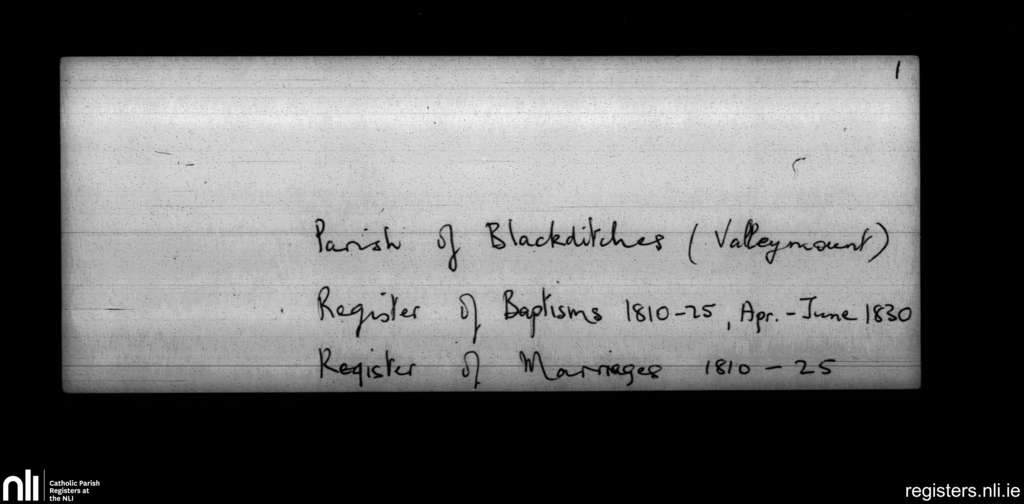 1
Parish of Blackditches (Valleymount)
Register of Baptisms 1810-25, Apr.-June 1830
Register of Marriages 1810-25
nli
Catholic Parish
Registers at
the NLI
registers.nli.ie